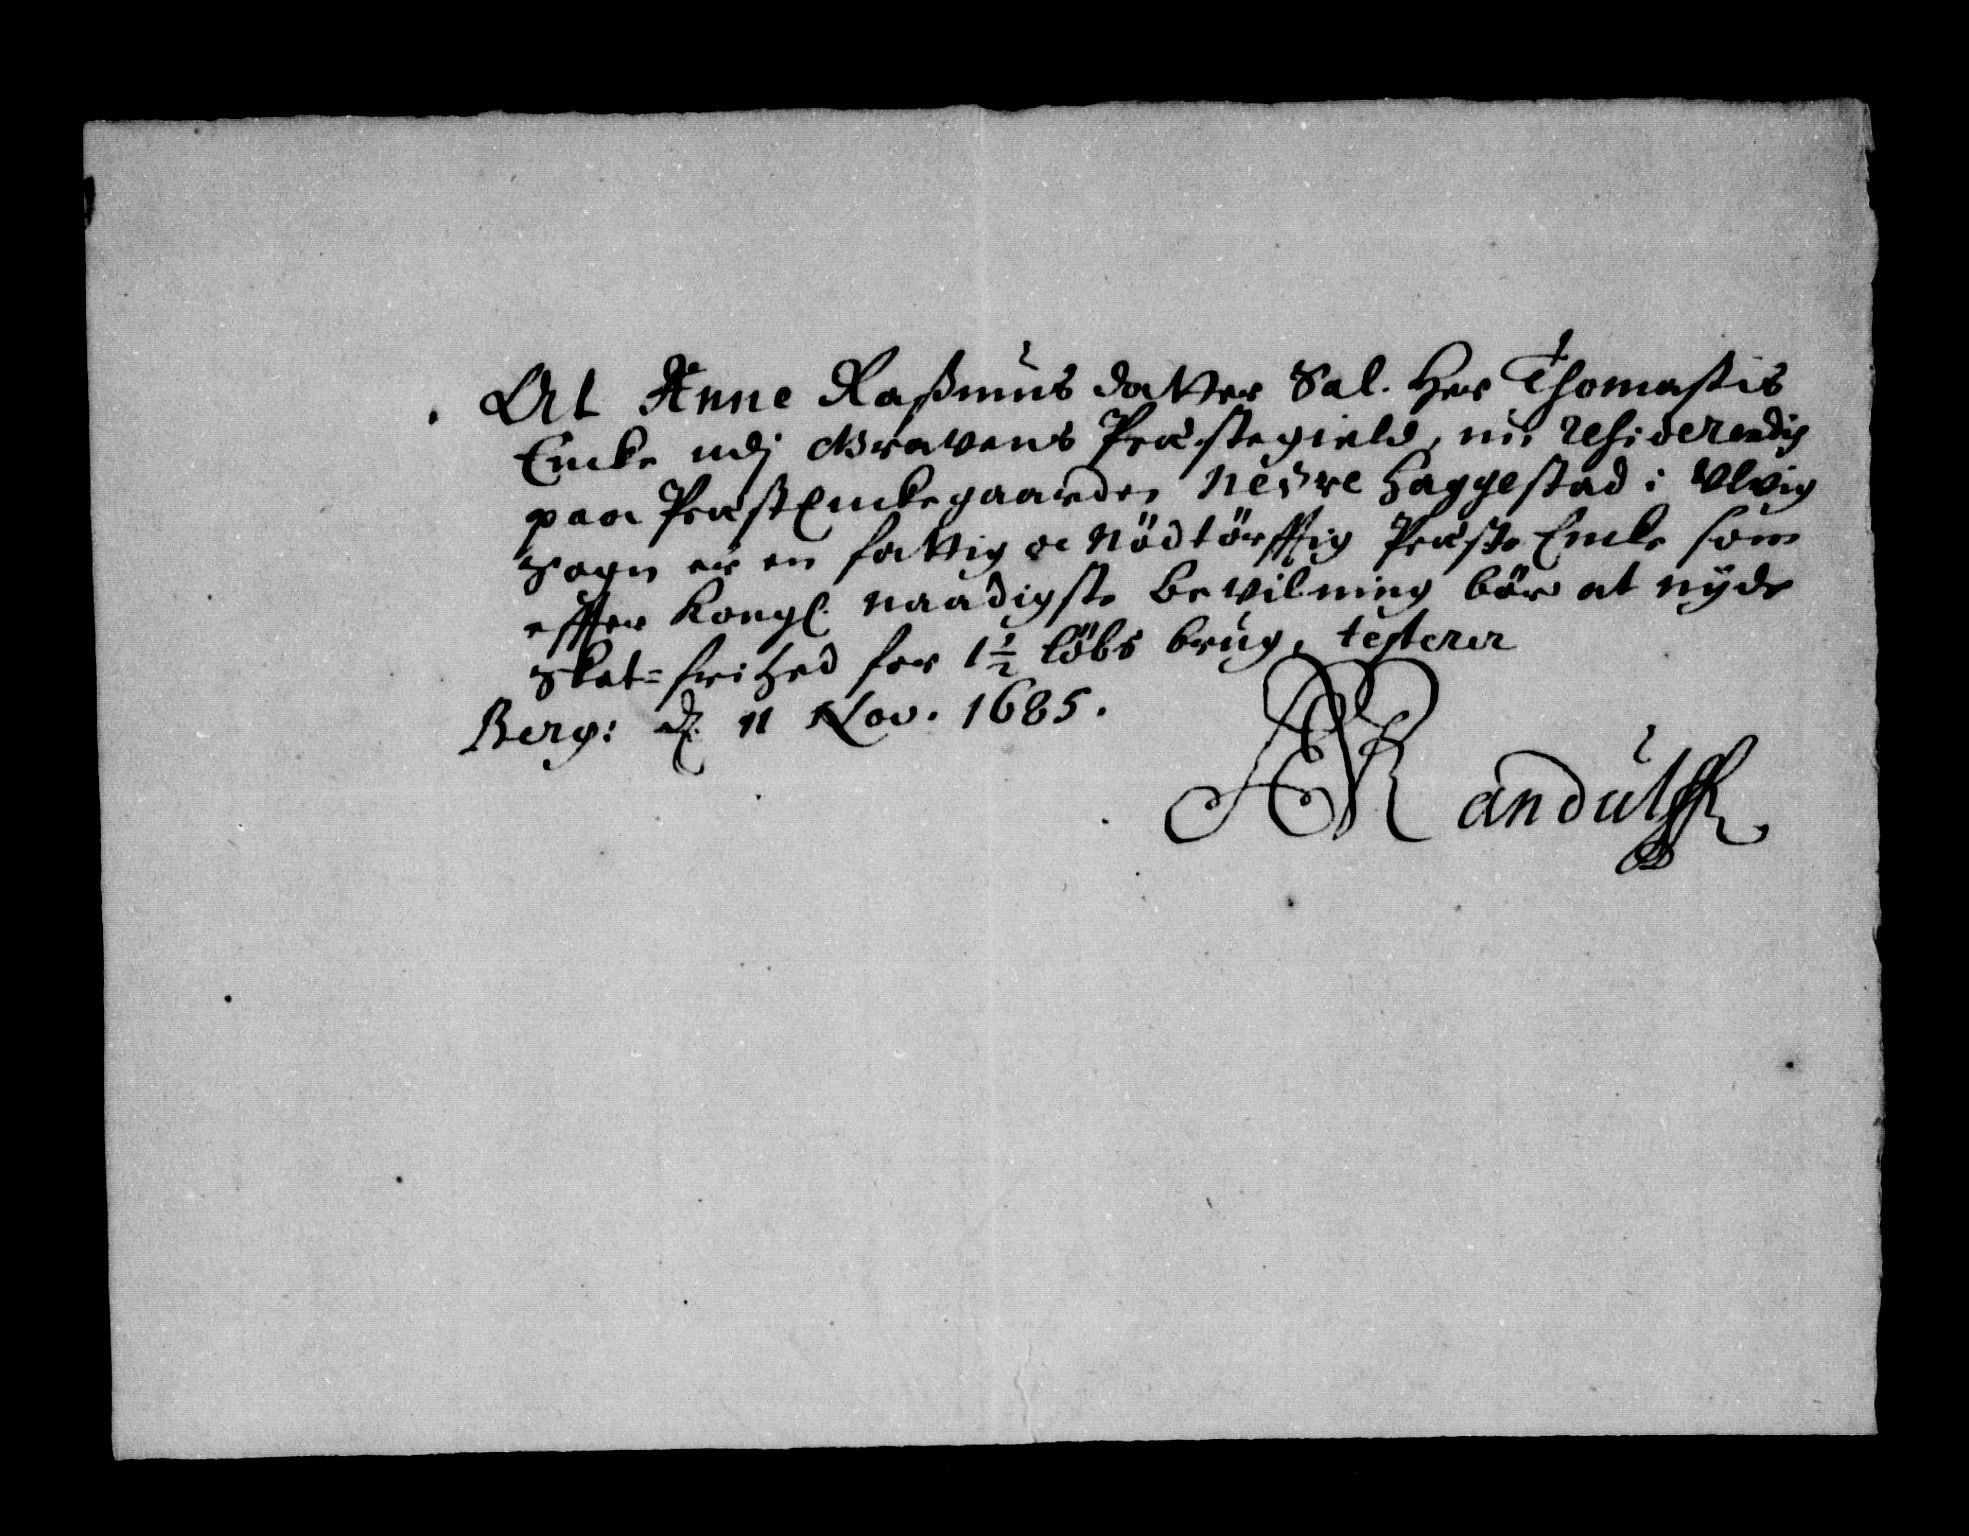 At Anne Raßmus datter Sal. Her Thomassis
Encke udj Gravens Præstegield, nu residerendis
paa PræstEnckegaarden Nedre Haggestad i Ulvig
Sogn er en fattig oc Nödtörfftig Præste Encke som
effter Kongl. naadigste bevilning bör at nyde
Skat=frihed for 1 1/2 löbs brug, testerer
Berg: d. 11 Nov. 1685.
Randulff